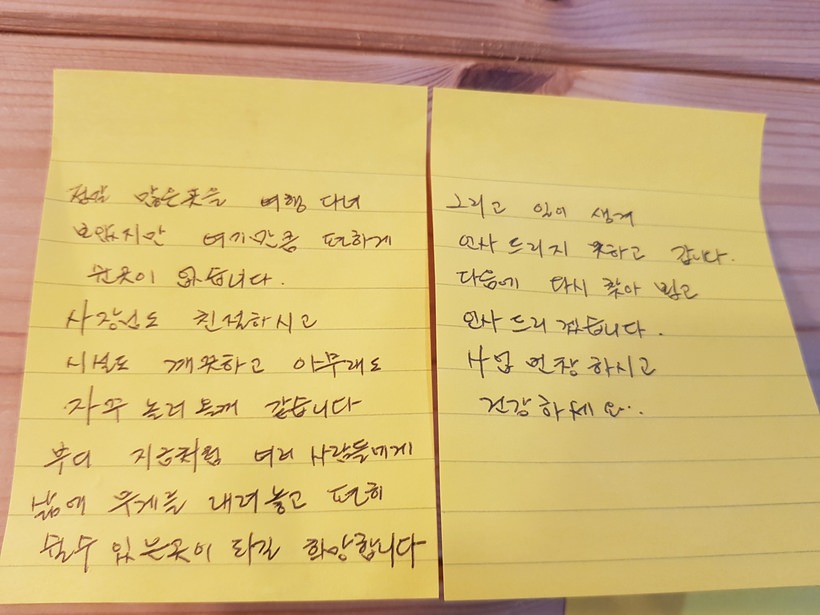 정말 많은곳을 여행 다녀
보았지만 여기만큼 편하게
쉰곳이 없습니다.
사장님도 친절하시고
시설도 깨끗하고 아무래도
자주 놀러 올께 같습니다
부디 지금처럼 여러 사람들에게
삶에 무게를 내려놓고 편히
쉴수 있는곳이 되길 희망합니다
그리고 일이 생겨
인사 드리지 못하고 갑니다.
다음에 다시 찾아 뵙고
인사 드리겠습니다.
사업 번창 하시고
건강 하세요..